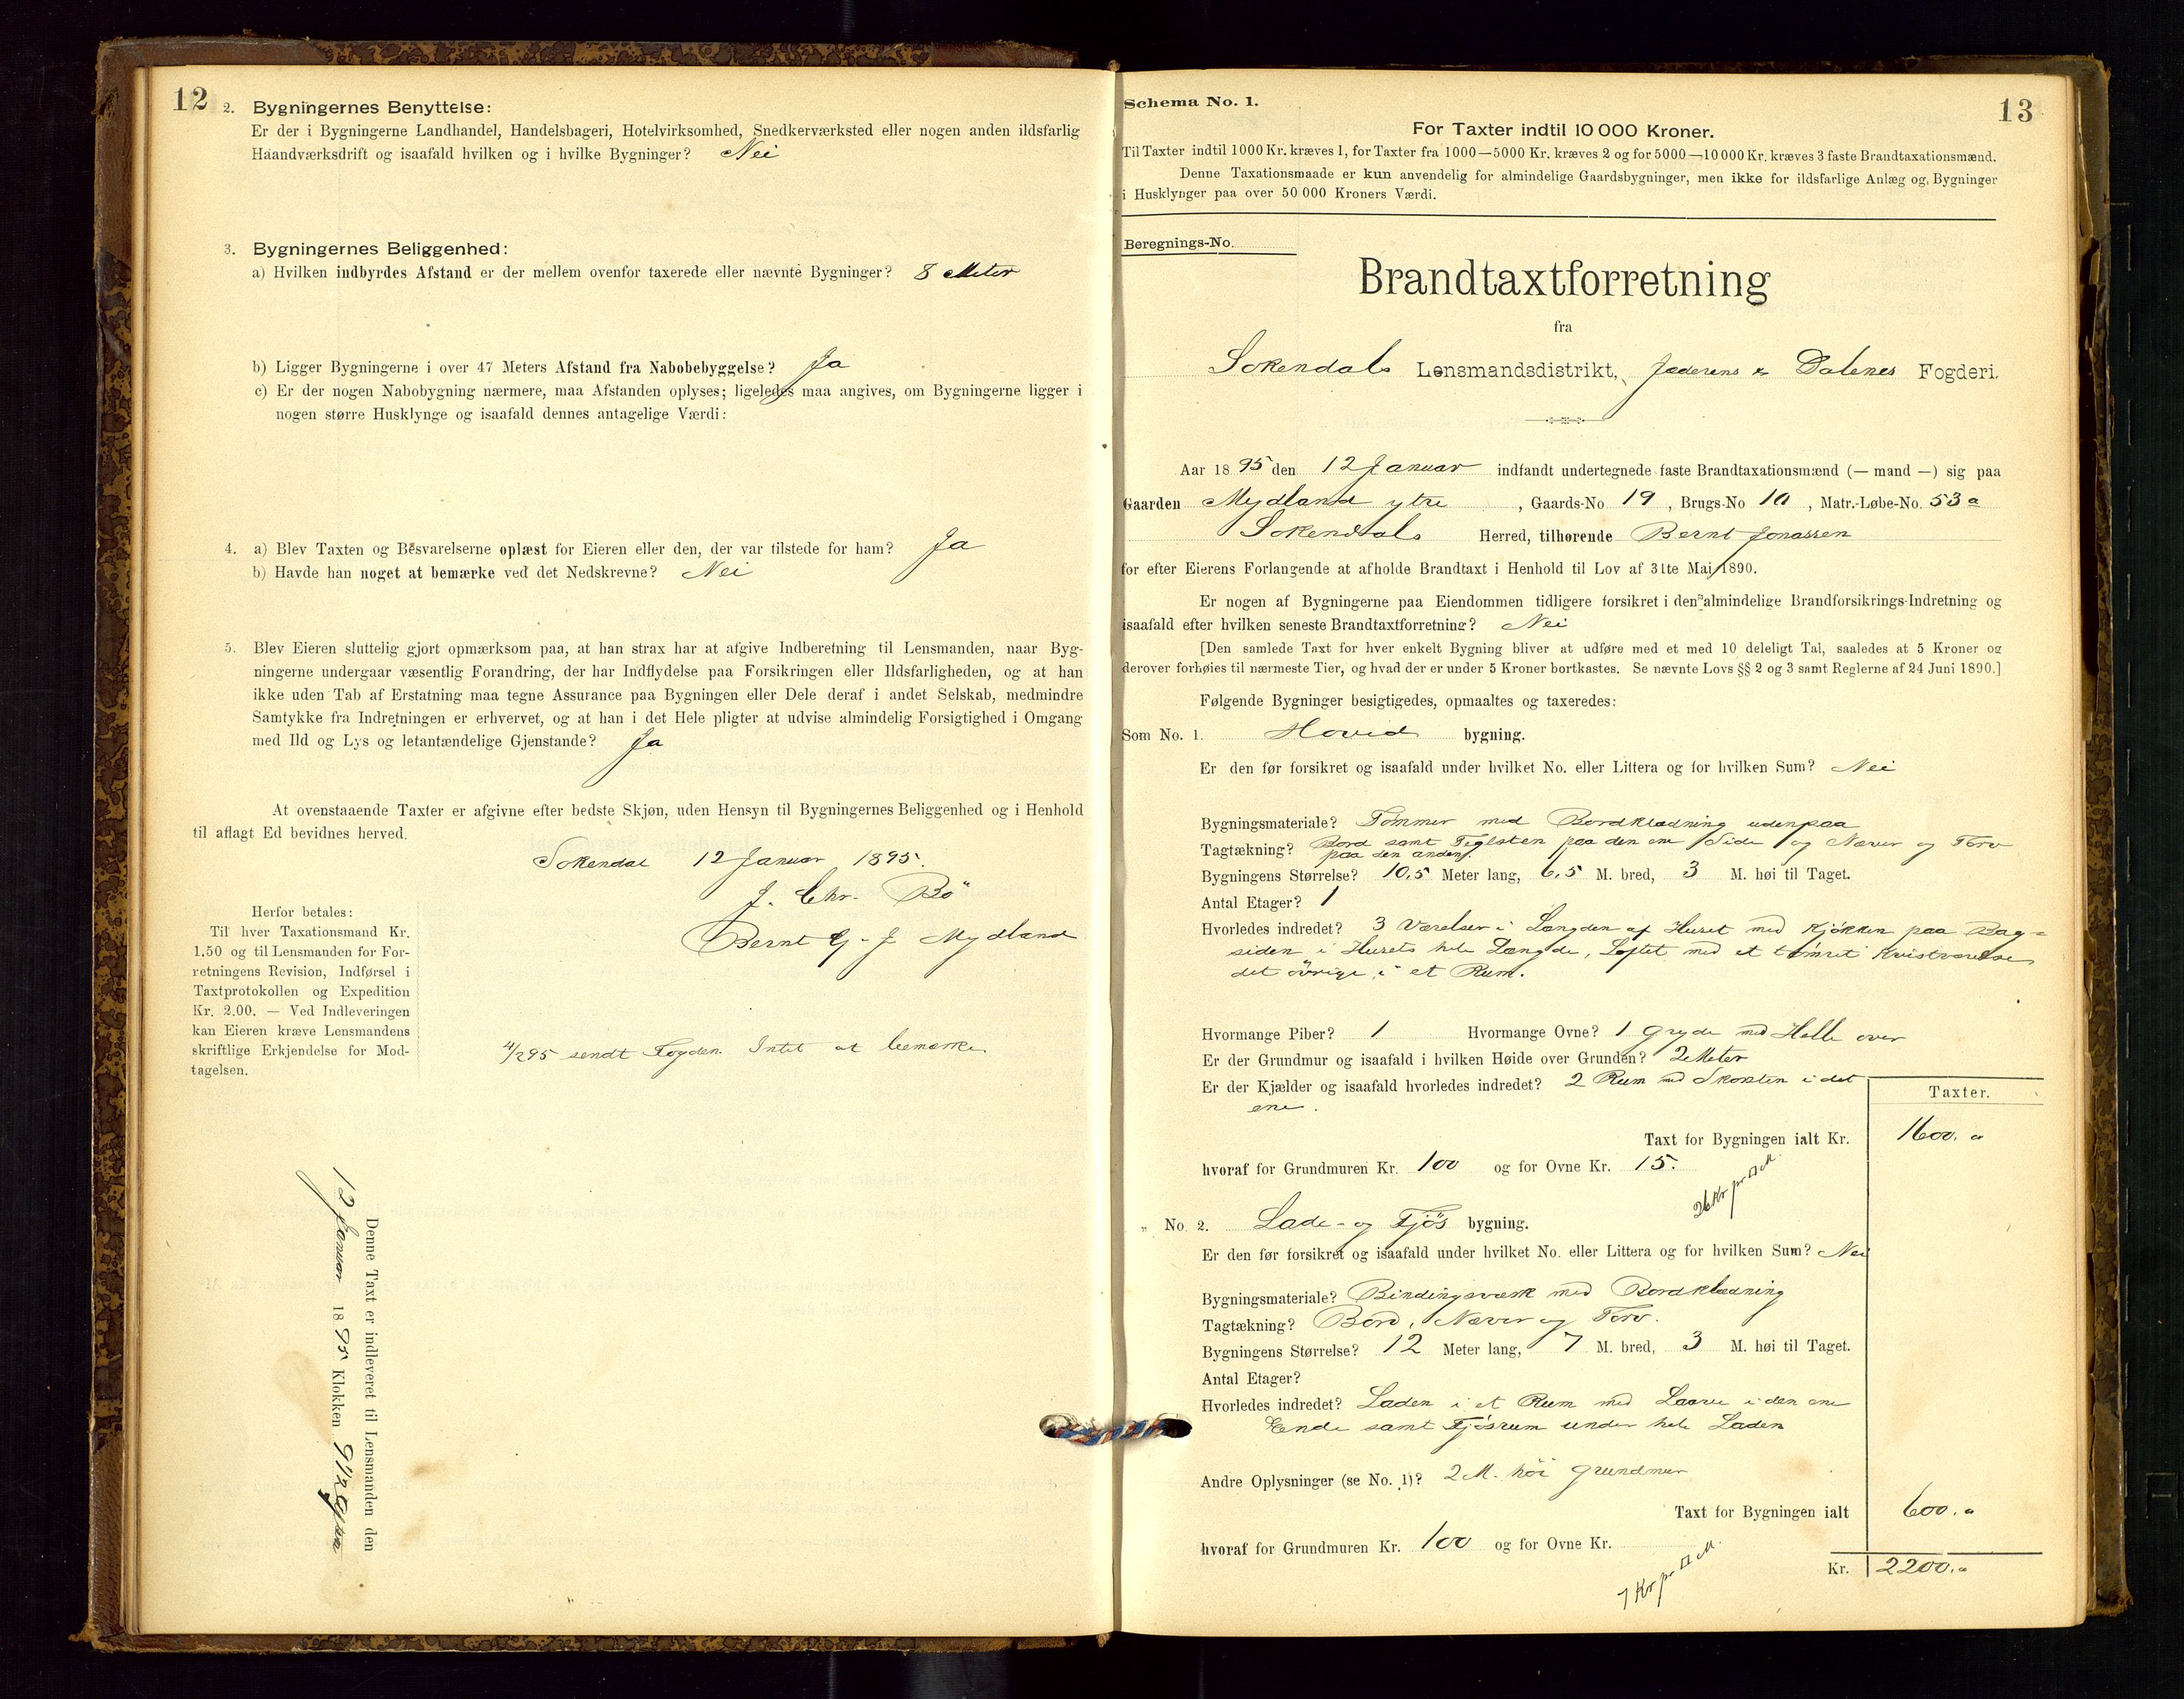 12
2. Bygningernes Benyttelse:
Er der i Bygningerne Landhandel, Handelsbageri, Hotelvirksomhed, Snedkerværksted eller nogen anden ildsfarlig
Haandværksdrift og isaafald hvilken og i hvilke Bygninger? Nei
3. Bygningernes Beliggenhed:
a) Hvilken indbyrdes Afstand er der mellem ovenfor taxerede eller nævnte Bygninger? 8 Meter
b) Ligger Bygningerne i over 47 Meters Afstand fra Nabobebyggelse? Ja
c) Er der nogen Nabobygning nærmere, maa Afstanden oplyses; ligeledes maa angives, om Bygningerne ligger i
nogen større Husklynge og isaafald dennes antagelige Værdi:
4. a) Blev Taxten og Besvarelserne oplæst for Eieren eller den, der var tilstede for ham? Ja
b) Havde han noget at bemærke ved det Nedskrevne? Nei
5. Blev Eieren sluttelig gjort opmærksom paa, at han strax har at afgive Indberetning til Lensmanden, naar Byg-
ningerne undergaar væsentlig Forandring, der har Indflydelse paa Forsikringen eller Ildsfarligheden, og at han
ikke uden Tab af Erstatning maa tegne Assurance paa Bygningen eller Dele deraf i andet Selskab, medmindre
Samtykke fra Indretningen er erhvervet, og at han i det Hele pligter at udvise almindelig Forsigtighed i Omgang
med Ild og Lys og letantændelige Gjenstande? Ja
At ovenstaaende Taxter er afgivne efter bedste Skjøn, uden Hensyn til Bygningernes Beliggenhed og i Henhold
til aflagt Ed bevidnes herved.
Sokendal 12 Januar 1895.
J. Chr. Bö
Bernt G. J. Mydland
Herfor betales:
Til hver Taxationsmand Kr.
1.50 og til Lensmanden for For-
retningens Revision, Indførsel i
Taxtprotokollen og Expedition
Kr. 2.00. — Ved Indleveringen
kan Eieren kræve Lensmandens
skriftlige Erkjendelse for Mod-
tagelsen.
4/295 sendt Fogden. Intet at bemærke
Denne Taxt er indleveret til Lensmanden den
12 Januar 1895 Klokken 9 1/2
13
Schema No. 1.
For Taxter indtil 10 000 Kroner.
Til Taxter indtil 1000 Kr. kræves 1, for Taxter fra 1000—5000 Kr. kræves 2 og for 5000—10000 Kr. kræves 3 faste Brandtaxationsmænd.
Denne Taxationsmaade er kun anvendelig for almindelige Gaardsbygninger, men ikke for ildsfarlige Anlæg og Bygninger
i Husklynger paa over 50 000 Kroners Værdi.
Beregnings-No.
Brandtaxtforretning
fra
Sokendals Lensmandsdistrikt, Jæderens & Dalenes Fogderi.
Aar 1895 den 12 Januar indfandt undertegnede faste Brandtaxationsmænd (— mand —) sig paa
Gaarden Mydland ytre, Gaards-No 19, Brugs-No 10, Matr.-Løbe-No. 53a
Sokendals Herred, tilhørende Bernt Jonassen
for efter Eierens Forlangende at afholde Brandtaxt i Henhold til Lov af 31te Mai 1890.
Er nogen af Bygningerne paa Eiendommen tidligere forsikret i den almindelige Brandforsikrings-Indretning og
isaafald efter hvilken seneste Brandtaxtforretning? Nei
[Den samlede Taxt for hver enkelt Bygning bliver at udføre med et med 10 deleligt Tal, saaledes at 5 Kroner og
derover forhøies til nærmeste Tier, og hvad der er under 5 Kroner bortkastes. Se nævnte Lovs §§ 2 og 3 samt Reglerne af 24 Juni 1890.]
Følgende Bygninger besigtigedes, opmaaltes og taxeredes:
Som No. 1. Hoved bygning.
Er den før forsikret og isaafald under hvilket No. eller Littera og for hvilken Sum? Nei
Bygningsmateriale? Tømmer med Bordklædning udenpaa
Tagtækning? Bord samt Teglsten paa den ene Side og Næver og Torv
paa den anden.
Bygningens Størrelse? 10,5 Meter lang, 6,5 M. bred, 3 M. høi til Taget.
Antal Etager? 1
Hvorledes indredet? 3 Værelser i Længden af Huset med Kjøkken paa Bag-
siden i Husets hele Længde, Loftet med et tømret Kvistværelse
det øvrige i et Rum.
Hvormange Piber? 1 Hvormange Ovne? 1 Gryde med Helle over
Er der Grundmur og isaafald i hvilken Høide over Grunden? 2 Meter
Er der Kjælder og isaafald hvorledes indredet? 2 Rum med Skorsten i det
ene.
Taxter.
Taxt for Bygningen ialt Kr. 1600. "
hvoraf for Grundmuren Kr. 100 og for Ovne Kr. 15.
26 Kr pr □ M.
" No. 2. Lade- og Fjös bygning.
Er den før forsikret og isaafald under hvilket No. eller Littera og for hvilken Sum? Nei
Bygningsmateriale? Bindingsværk med Bordklædning
Tagtækning? Bord, Næver og Torv.
Bygningens Størrelse? 12 Meter lang, 7 M. bred, 3 M. høi til Taget.
Antal Etager?
Hvorledes indredet? Laden i et Rum med Laave i den ene
Ende samt Fjösrum under hele Laden
Andre Oplysninger (se No. 1)? 2 M. höi Grundmur
Taxt for Bygningen ialt 600. "
hvoraf for Grundmuren Kr. 100 og for Ovne Kr.
7 Kr pr □ M.
Kr. 2200. "